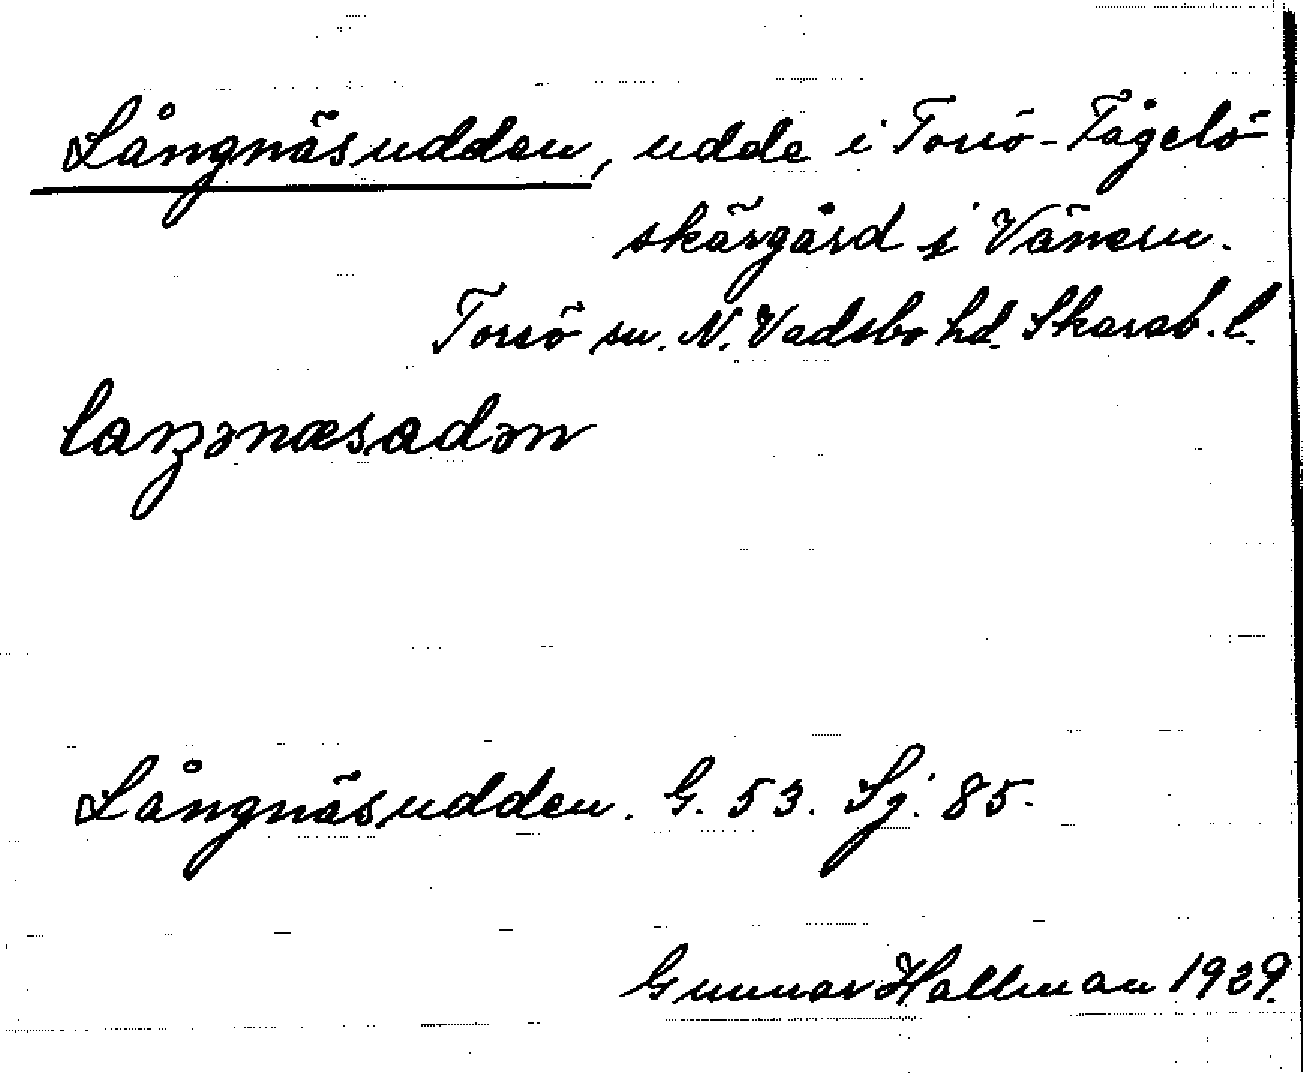 Långnäsudden, udde i Torsö-Fågelö
skärgård i Vänern.
Torsö sn. N. Vadsbo hd. Skarab. l.
Långnäsudden. G. 53. Sj. 85.
Gunnar Hallman 1929.